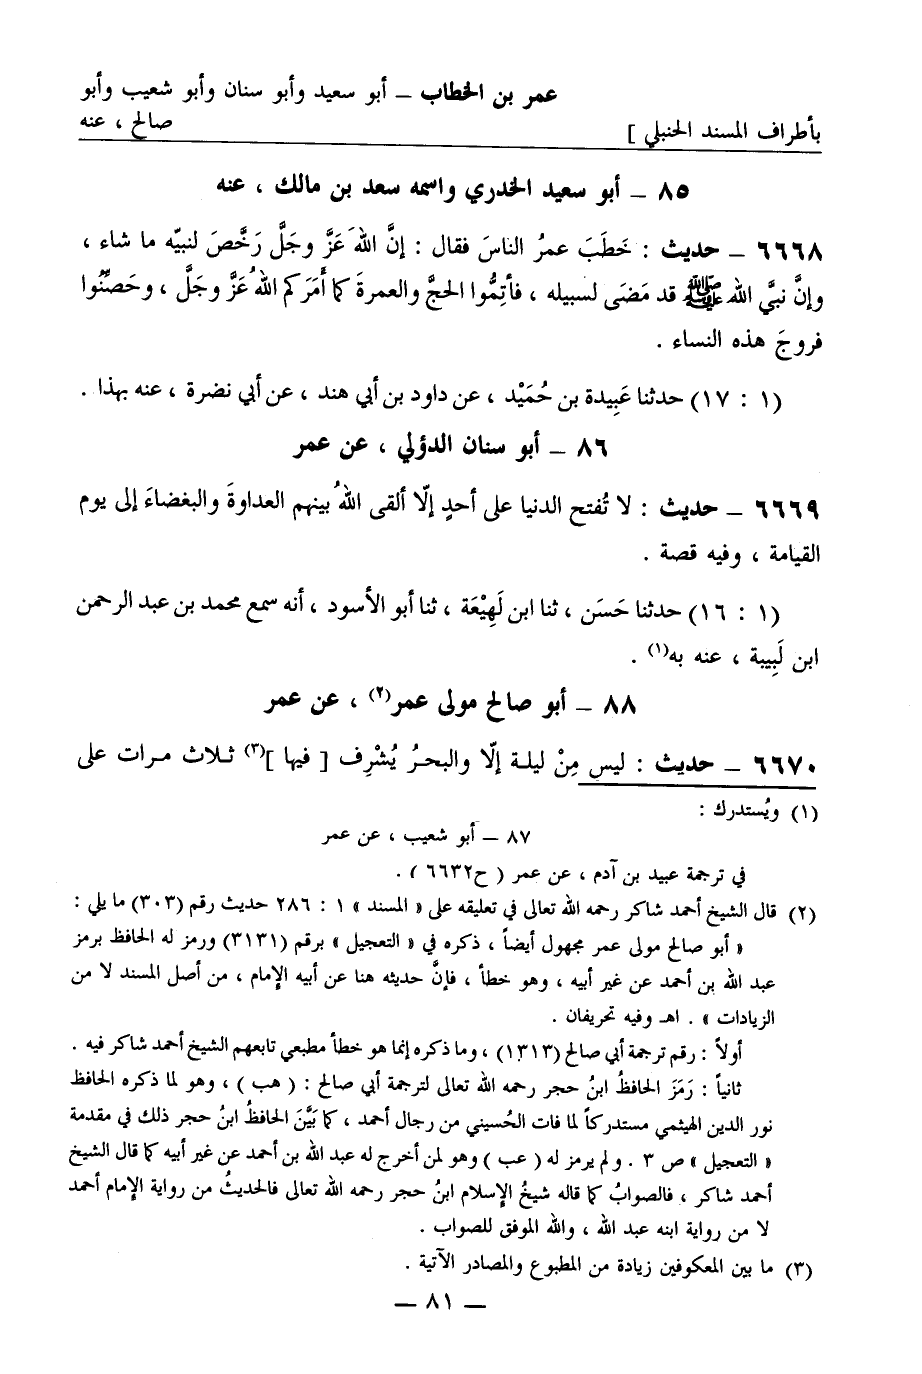 عمر بن الخطاب – أبو سعيد وأبو سنان وأبو شعيب وأبو
بأطراف المسند الحنبلي ] صالح ، عنه
٨٥ – أبو سعيد الخدري واسمه سعد بن مالك ، عنه
٦٦٦٨ – حديث : خَطَبَ عمرُ الناسَ فقال : إنَّ اللهَ عَزَّ وجَلَّ رَخَّصَ لنبيّه ما شاء ،
وإنَّ نبيَّ الله ﷺ قد مَضَى لسبيله ، فأتِمُّوا الحجَّ والعمرةَ كما أَمَرَكم اللهُ عَزَّ وجَلَّ ، وحَصِّنُوا
فروجَ هذه النساء .
(١ : ١٧) حدثنا عَبِيدة بن حُمَيْد ، عن داود بن أبي هند ، عن أبي نضرة ، عنه بهذا .
٨٦ – أبو سنان الدؤلي ، عن عمر
٦٦٦٩ – حديث : لا تُفتح الدنيا على أحدٍ إلّا ألقى اللهُ بينهم العداوةَ والبغضاءَ إلى يوم
القيامة ، وفيه قصة .
(١ : ١٦) حدثنا حَسَن ، ثنا ابن لَهِيْعَة ، ثنا أبو الأسود ، أنه سمع محمد بن عبد الرحمن
ابن لَبِيبة ، عنه به(١) .
٨٨ – أبو صالح مولى عمر(٢) ، عن عمر
٦٦٧٠ – حديث : ليس مِنْ ليلة إلّا والبحرُ يُشْرِف [ فيها ](٣) ثلاث مرات على
(١) ويُستدرك :
٨٧ – أبو شعيب ، عن عمر
في ترجمة عبيد بن آدم ، عن عمر ( ح٦٦٣٢ ) .
(٢) قال الشيخ أحمد شاكر رحمه الله تعالى في تعليقه على « المسند » ١ : ٢٨٦ حديث رقم (٣٠٣) ما يلي :
« أبو صالح مولى عمر مجهول أيضاً ، ذكره في « التعجيل » برقم (٣١٣١) ورمز له الحافظ برمز
عبد الله بن أحمد عن غير أبيه ، وهو خطأ ، فإنَّ حديثه هنا عن أبيه الإمام ، من أصل المسند لا من
الزيادات » . اهـ وفيه تحريفان .
أولاً : رقم ترجمة أبي صالح (١٣١٣) ، وما ذكره إنما هو خطأ مطبعي تابعهم الشيخ أحمد شاكر فيه .
ثانياً : رَمَزَ الحافظُ ابنُ حجر رحمه الله تعالى لترجمة أبي صالح : ( هب ) ، وهو لما ذكره الحافظ
نور الدين الهيثمي مستدركاً لما فات الحُسيني من رجال أحمد ، كما بَيَّنَ الحافظُ ابنُ حجر ذلك في مقدمة
« التعجيل » ص ٣ . ولم يرمز له ( عب ) وهو لمن أخرج له عبد الله بن أحمد عن غير أبيه كما قال الشيخ
أحمد شاكر ، فالصوابُ كما قاله شيخُ الإسلام ابنُ حجر رحمه الله تعالى فالحديثُ من رواية الإمام أحمد
لا من رواية ابنه عبد الله ، والله الموفق للصواب .
(٣) ما بين المعكوفين زيادة من المطبوع والمصادر الآتية .
– ٨١ –